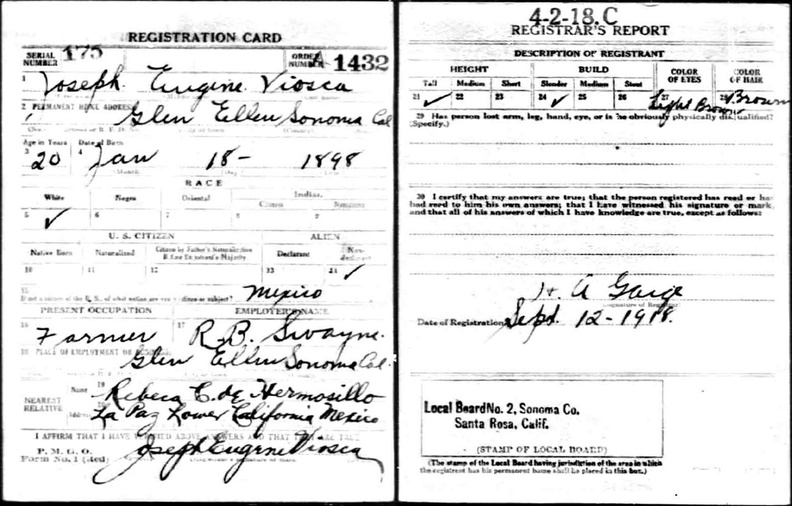 REGISTRATION CARD
SERIAL NUMBER 175 ORDER NUMBER A 1432
1 Joseph Eugene Viosca
2 PERMANENT HOME ADDRESS
Glen Ellen Sonoma Cal
Age in Years Date of Birth
3 20 4 Jan 18- 1898
RACE
White Negro Oriental Indian
Citizen
5 ✓ 6 7 8 9
U. S. CITIZEN ALIEN
Native Born Naturalized Citizen by Father's Naturalization Declarant Non-
Before Registrant's Majority
10 11 12 13 ✓
15
If not a citizen of the U. S., of what nation are you a citizen or subject? Mexico
PRESENT OCCUPATION EMPLOYER'S NAME
16 Farmer 17 R. B. Swayne.
18 PLACE OF EMPLOYMENT OR
Glen Ellen Sonoma Cal.
NEAREST RELATIVE
Name 19 Rebeca C. de Hermosillo
Address 20 La Paz Lower California Mexico
I AFFIRM THAT I HAVE VERIFIED ABOVE ANSWERS AND THAT
P. M. G. O.
Form No. 1 (Red) Joseph Eugene Viosca
4-2-18. C
REGISTRAR'S REPORT
DESCRIPTION OF REGISTRANT
HEIGHT BUILD COLOR OF EYES COLOR OF HAIR
Tall Medium Short Slender Medium Stout
21 ✓ 22 23 24 ✓ 25 26 27 Light Brown 28 Brown
29 Has person lost arm, leg, hand, eye, or is he obviously physically disqualified?
(Specify.)
30 I certify that my answers are true; that the person registered has read or has
had read to him his own answers; that I have witnessed his signature or mark,
and that all of his answers of which I have knowledge are true, except as follows:
H. A
Signature of Registrar
Date of Registration Sept. 12-1918.
Local Board No. 2, Sonoma Co.
Santa Rosa, Calif.
(STAMP OF LOCAL BOARD)
(The stamp of the Local Board having jurisdiction of the area in which
the registrant has his permanent home shall be placed in this box.)